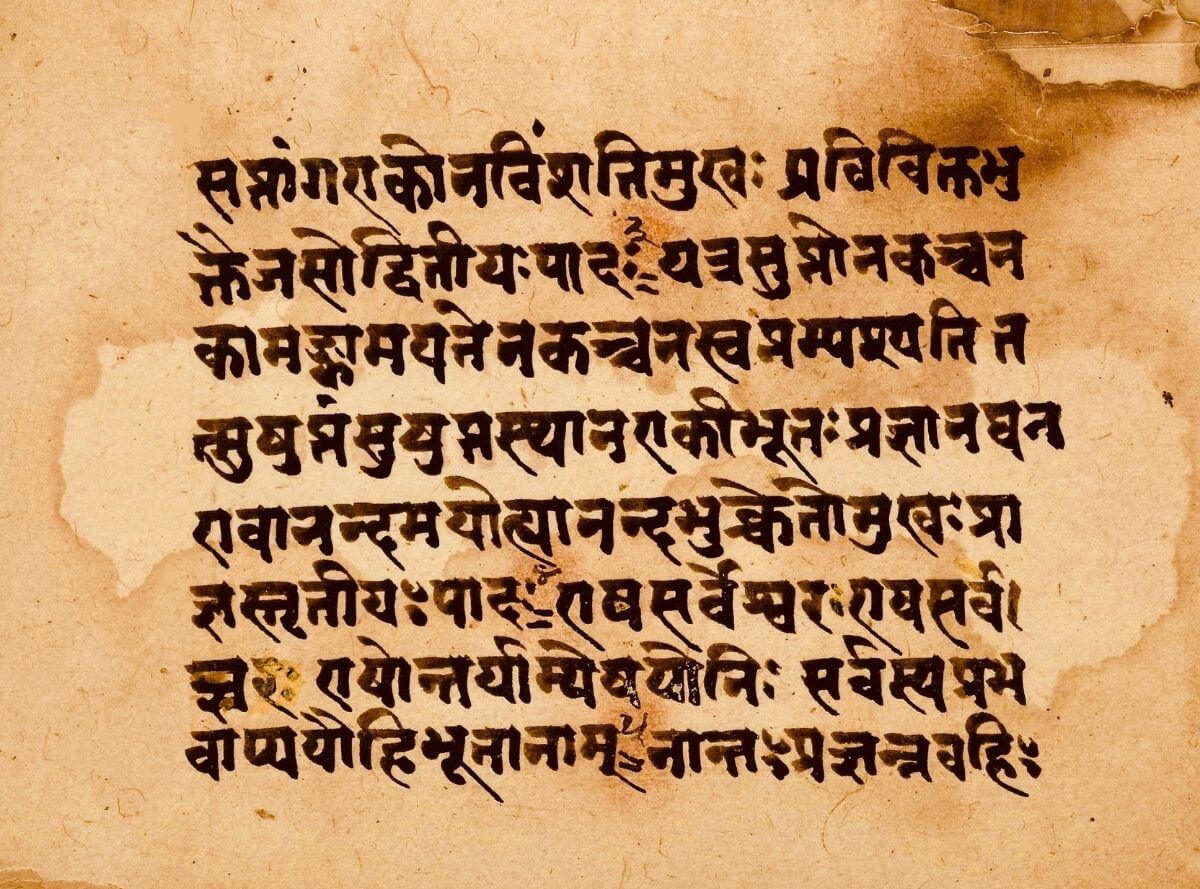 सप्तांगएकोनविंशतिमुखः प्रविविक्तभु
क्तैजसोद्वितीयःपादः३ यत्रसुप्तोनकञ्चन
कामङ्कामयतेनकञ्चनस्वप्नम्पश्यतित
त्सुषुप्तंसुषुप्तस्थानएकीभूतःप्रज्ञानघन
एवानन्दमयोह्यानन्दभुक्चेतोमुखःप्रा
ज्ञस्तृतीयःपादः४ एषसर्वेश्वरःएषसर्व।
ज्ञ एषोन्तर्याम्येषयोनिः सर्वस्यप्रभ
वाप्ययौहिभूतानाम्५ नान्तःप्रज्ञन्नवहिः